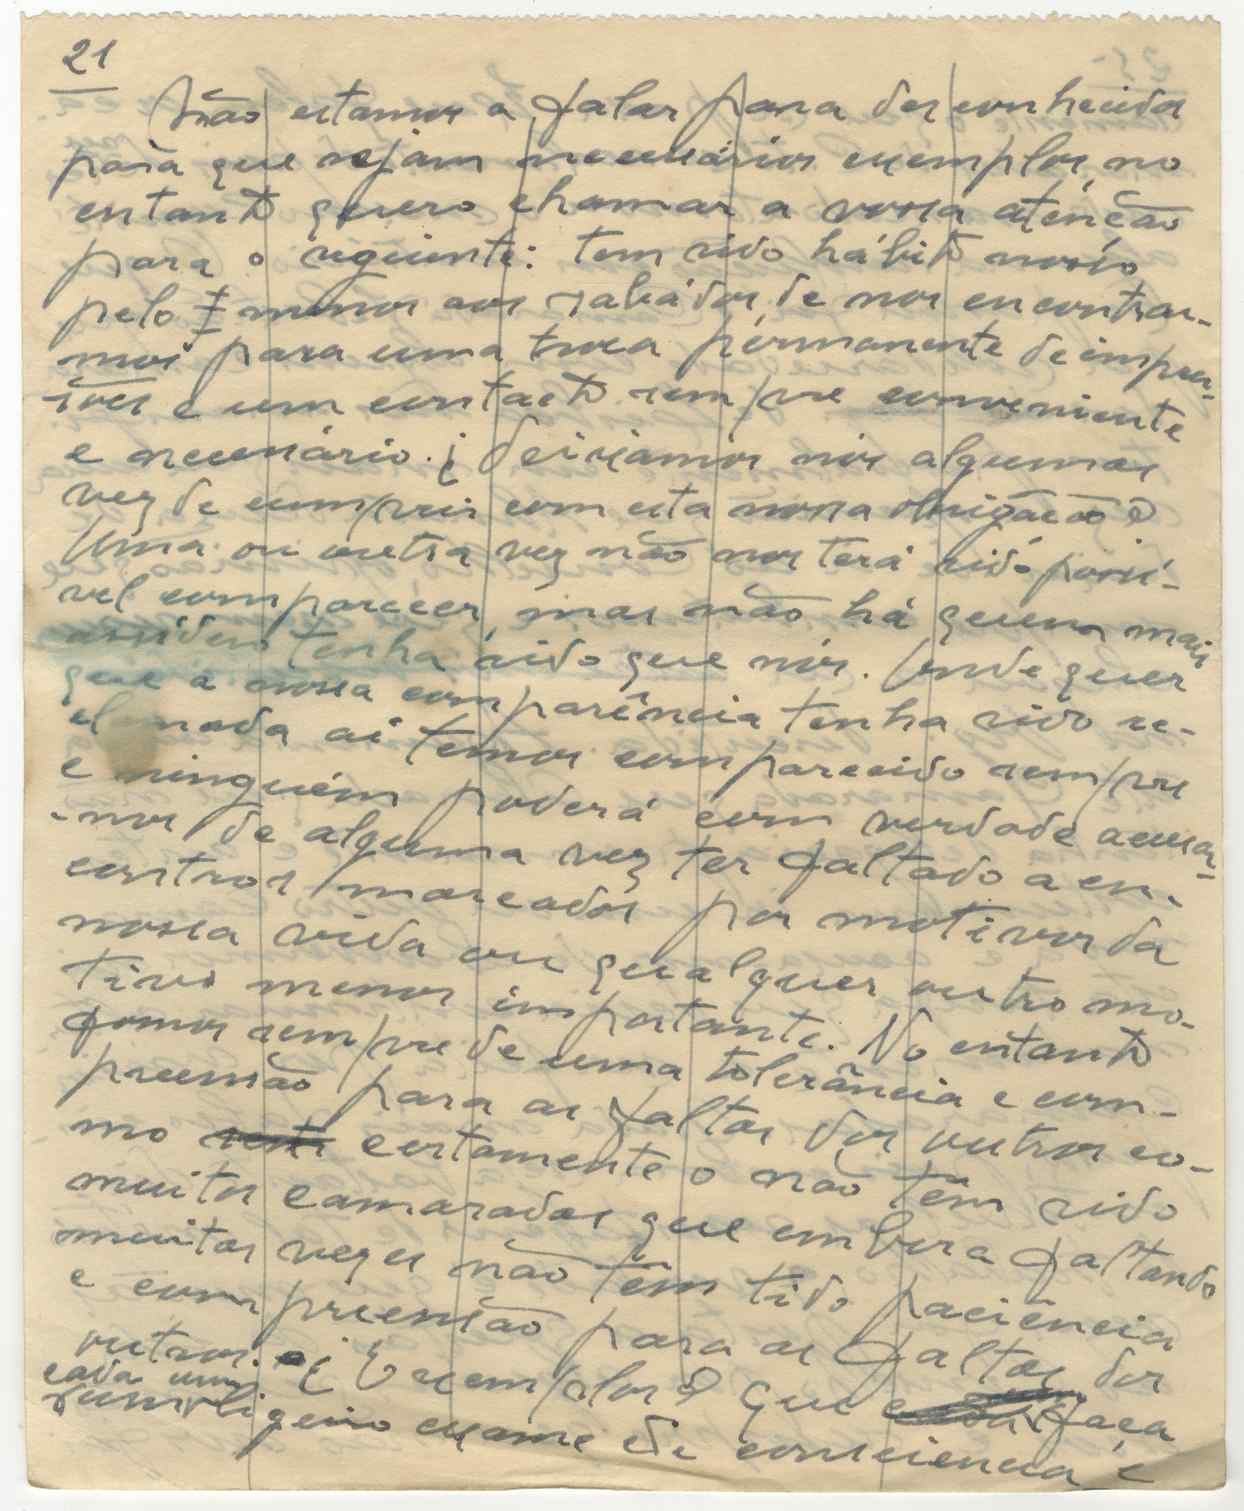 21
Não estamos a falar para desconhecidos
para que sejam necessários exemplos, no
entanto quero chamar a vossa atenção
para o seguinte: tem sido hábito nosso
pelo menos aos sabádos, de nos encontrar-
mos para uma troca pérmanente de impres-
sões e um contacto sempre conveniente
e necessário. ¿ Deixamos nós algumas
vez de cumprir com esta nossa obrigação?
Uma ou outra vez não nos terá sido possí-
vel comparecer, mas não há quem mais
assíduo tenha sido que nós. Onde quer
que a nossa comparência tenha sido re-
clamada aí temos comparecido sempre
e ninguém poderá com verdade acusar-
-nos de alguma vez ter faltado a en-
contros marcados por motivos da
nossa vida ou qualquer outro mo-
tivo menos importante. No entanto
fomos sempre de uma tolerância e com-
preensão para as faltas dos outros co-
mo certamente o não têm sido
muitos camaradas que embora faltando
muitas vezes não têm tido paciência
e compreensão para as faltas dos
outros. ¿Exemplos? Que faça
cada um
um ligeiro exame de consciência e